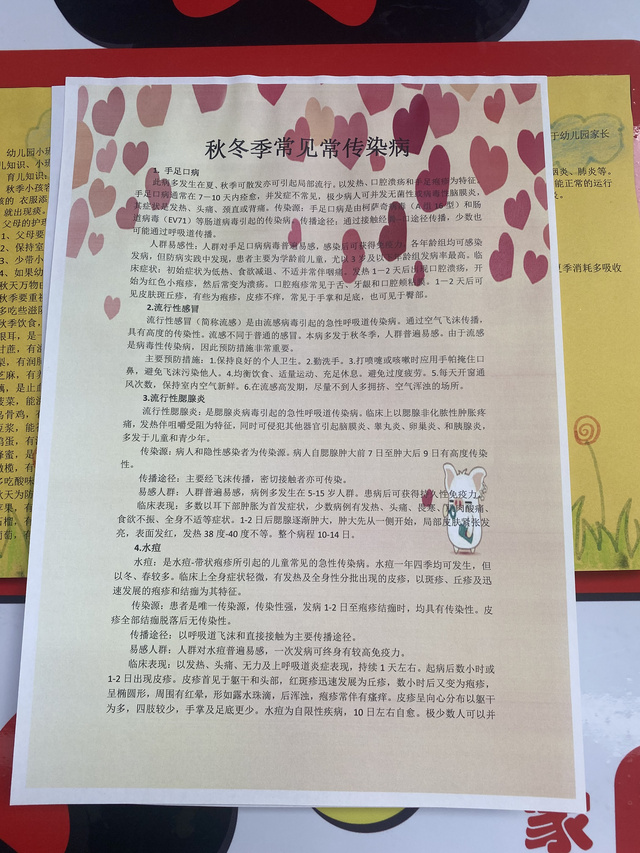 秋冬季常见常传染病
1. 手足口病
此病多发生在夏、秋季可散发亦可引起局部流行。以发热、口腔溃疡和手足疱疹为特征
手足口病通常在 7—10 天内痊愈,并发症不常见,极少病人可并发无菌性或病毒性脑膜炎,
其症状是发热、头痛、颈直或背痛。传染源:手足口病是由柯萨奇病毒(A组16型)和肠
道病毒(EV71)等肠道病毒引起的传染病。传播途径:通过接触经粪-口途径传播,少数也
可能通过呼吸道传播。
人群易感性:人群对手足口病病毒普遍易感,感染后可获得免疫力,各年龄组均可感染
发病,但防病实践中发现,患者主要为学龄前儿童,尤以3岁及以下年龄组发病率最高。临
床症状:初始症状为低热、食欲减退、不适并常伴咽痛。发热 1—2 天后出现口腔溃疡,开
始为红色小疱疹,然后常变为溃疡。口腔疱疹常见于舌、牙龈和口腔颊粘膜。1—2 天后可
见皮肤斑丘疹,有些为疱疹,皮疹不痒,常见于手掌和足底,也可见于臀部。
2.流行性感冒
流行性感冒(简称流感)是由流感病毒引起的急性呼吸道传染病。通过空气飞沫传播,
具有高度的传染性。流感不同于普通的感冒。本病多发于秋冬季,人群普遍易感。由于流感
是病毒性传染病,因此预防措施非常重要。
主要预防措施:1.保持良好的个人卫生。2.勤洗手。3.打喷嚏或咳嗽时应用手帕掩住口
鼻,避免飞沫污染他人。4.均衡饮食、适量运动、充足休息。避免过度疲劳。5.每天开窗通
风次数,保持室内空气新鲜。6.在流感高发期,尽量不到人多拥挤、空气浑浊的场所。
3.流行性腮腺炎
流行性腮腺炎:是腮腺炎病毒引起的急性呼吸道传染病。临床上以腮腺非化脓性肿胀疼
痛,发热伴咀嚼受阻为特征,同时可侵犯其他器官引起脑膜炎、睾丸炎、卵巢炎、和胰腺炎,
多发于儿童和青少年。
传染源:病人和隐性感染者为传染源。病人自腮腺肿大前 7 日至肿大后 9 日有高度传染
性。
传播途径:主要经飞沫传播,密切接触者亦可传染。
易感人群:人群普遍易感,病例多发生在 5-15 岁人群。患病后可获得持久性免疫力。
临床表现:多数以耳下部肿胀为首发症状,少数病例有发热、头痛、畏寒、肌肉酸痛、
食欲不振、全身不适等症状。1-2 日后腮腺逐渐肿大,肿大先从一侧开始,局部皮肤紧张发
亮,表面发红,发热 38 度-40 度不等。整个病程 10-14 日。
4.水痘
水痘:是水痘-带状疱疹所引起的儿童常见的急性传染病。水痘一年四季均可发生,但
以冬、春较多。临床上全身症状轻微,有发热及全身性分批出现的皮疹,以斑疹、丘疹及迅
速发展的疱疹和结痂为其特征。
传染源:患者是唯一传染源,传染性强,发病 1-2 日至疱疹结痂时,均具有传染性。皮
疹全部结痂脱落后无传染性。
传播途径:以呼吸飞沫和直接接触为主要传播途径。
易感人群:人群对水痘普遍易感,一次发病可终身有较高免疫力。
临床表现:以发热、头痛、无力及上呼吸道炎症表现,持续 1 天左右。起病后数小时或
1-2 日出现皮疹。皮疹首见于躯干和头部,红斑疹迅速发展为丘疹,数小时后又变为疱疹,
呈椭圆形,周围有红晕,形如露水珠滴,后浑浊,疱疹常伴有瘙痒。皮疹呈向心分布以躯干
为多,四肢较少,手掌及足底更少。水痘为自限性疾病,10 日左右自愈。极少数人可以并
于幼儿园家长
咽炎、肺炎等。
能正常的运行
夏季消耗多吸收
家